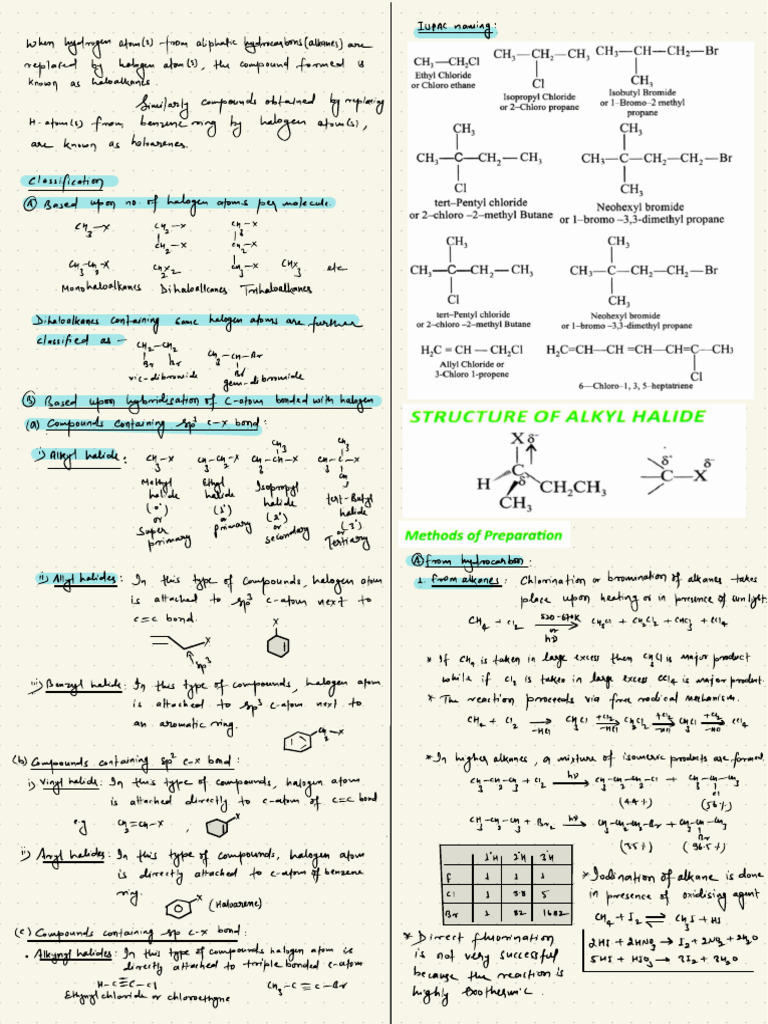 When hydrogen atom(s) from aliphatic hydrocarbons (alkanes) are
replaced by halogen atom(s), the compound formed is
known as haloalkanes.
Similarly compounds obtained by replacing
H-atom(s) from benzene ring by halogen atom(s),
are known as haloarenes.
Classification
(A) Based upon no. of halogen atoms per molecule.
CH3-X CH2-X CH2-X
CH2-X CH-X
CH3-CH2-X CHX2 CH2-X CHX3 etc
Monohaloalkanes Dihaloalkanes Trihaloalkanes
Dihaloalkanes containing same halogen atoms are further
classified as -
CH2-CH2 CH3-CH-Br
Br Br Br
vic-dibromide gem-dibromide
(B) Based upon hybridisation of C-atom bonded with halogen
(a) Compounds containing sp3 C-X bond:
i) Alkyl halide: CH3-X CH3-CH2-X CH3-CH-X CH3-C-X
CH3 CH3 CH3
Methyl Ethyl Isopropyl tert-Butyl
halide halide halide halide
(0°) (1°) (2°) (3°)
or or or or
super primary secondary Tertiary
primary
ii) Allyl halides: In this type of compounds, halogen atom
is attached to sp3 C-atom next to
C=C bond.
X X
sp3
iii) Benzyl halide: In this type of compounds, halogen atom
is attached to sp3 C-atom next to
an aromatic ring.
CH2-X
(b) Compounds containing sp2 C-X bond:
i) Vinyl halide: In this type of compounds, halogen atom
is attached directly to C-atom of C=C bond
e.g CH2=CH-X , X
ii) Aryl halides: In this type of compounds, halogen atom
is directly attached to C-atom of benzene
ring.
X (Haloarene)
(c) Compounds containing sp C-X bond:
• Alkynyl halides: In this type of compounds halogen atom is
directly attached to triple bonded C-atom
H-C≡C-Cl CH3-C≡C-Br
Ethynyl chloride or chloroethyne
IUPAC naming:
CH3—CH2Cl CH3—CH2—CH3 CH3—CH—CH2—Br
Ethyl Chloride Cl CH3
or Chloro ethane Isopropyl Chloride Isobutyl Bromide
or 2–Chloro propane or 1–Bromo–2 methyl
propane
CH3 CH3
CH3—C—CH2—CH3 CH3—C—CH2—CH2—Br
Cl CH3
tert–Pentyl chloride Neohexyl bromide
or 2–chloro –2–methyl Butane or 1–bromo –3,3-dimethyl propane
CH3 CH3
CH3—C—CH2—CH3 CH3—C—CH2—CH2—Br
Cl CH3
tert–Pentyl chloride Neohexyl bromide
or 2–chloro –2–methyl Butane or 1–bromo –3,3-dimethyl propane
H2C = CH — CH2Cl H2C=CH—CH =CH—CH=C—CH3
Allyl Chloride or Cl
3-Chloro 1-propene 6—Chloro–1, 3, 5–heptatriene
STRUCTURE OF ALKYL HALIDE
X δ-
H C δ+ CH2CH3
CH3
δ+ C—X δ-
Methods of Preparation
(A) from hydrocarbon:
1. from alkanes: Chlorination or bromination of alkanes takes
place upon heating or in presence of sunlight.
CH4 + Cl2 520-670K or hν → CH3Cl + CH2Cl2 + CHCl3 + CCl4
* If CH4 is taken in large excess then CH3Cl is major product
while if Cl2 is taken in large excess CCl4 is major product.
* The reaction proceeds via free radical mechanism.
CH4 + Cl2 → -HCl CH3Cl +Cl2 → -HCl CH2Cl2 +Cl2 → -HCl CHCl3 +Cl2 → -HCl CCl4
* In higher alkanes, a mixture of isomeric products are formed.
CH3-CH2-CH3 + Cl2 hν → CH3-CH2-CH2-Cl + CH3-CH-CH3
Cl
(44%) (56%)
CH3-CH2-CH3 + Br2 hν → CH3-CH2-CH2-Br + CH3-CH-CH3
Br
(3.5%) (96.5%)
1°H 2°H 3°H
F 1 1 1
Cl 1 3.8 5
Br 1 82 1602
* Iodination of alkane is done
in presence of oxidising agent
CH4 + I2 ⇌ CH3I + HI
2HI + 2HNO3 → I2 + 2NO2 + 2H2O
5HI + HIO3 → 3I2 + 3H2O
* Direct fluorination
is not very successful
because the reaction is
highly Exothermic.